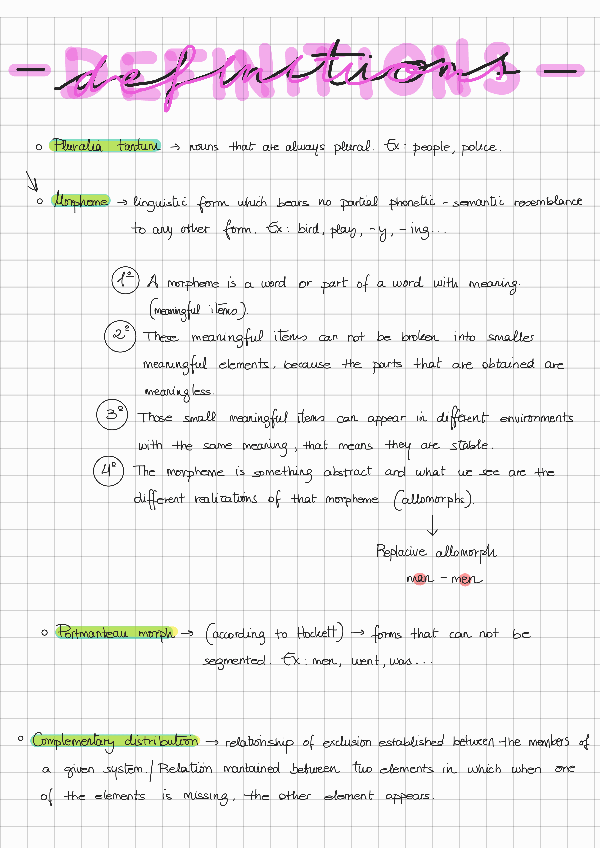 DEFINITIONS
- definitions -
o Pluralia tantum → nouns that are always plural. Ex: people, police.
o Morpheme → linguistic form which bears no partial phonetic - semantic resemblance
to any other form. Ex: bird, play, -y, -ing...
1º A morpheme is a word or part of a word with meaning.
(meaningful items).
2º These meaningful items can not be broken into smaller
meaningful elements, because the parts that are obtained are
meaningless.
3º Those small meaningful items can appear in different environments
with the same meaning, that means they are stable.
4º The morpheme is something abstract and what we see are the
different realizations of that morpheme (allomorphs).
↓
Replacive allomorph
man - men
o Portmanteau morph → (according to Hockett) → forms that can not be
segmented. Ex: men, went, was...
o Complementary distribution → relationship of exclusion established between the members of
a given system / Relation mantained between two elements in which when one
of the elements is missing, the other element appears.